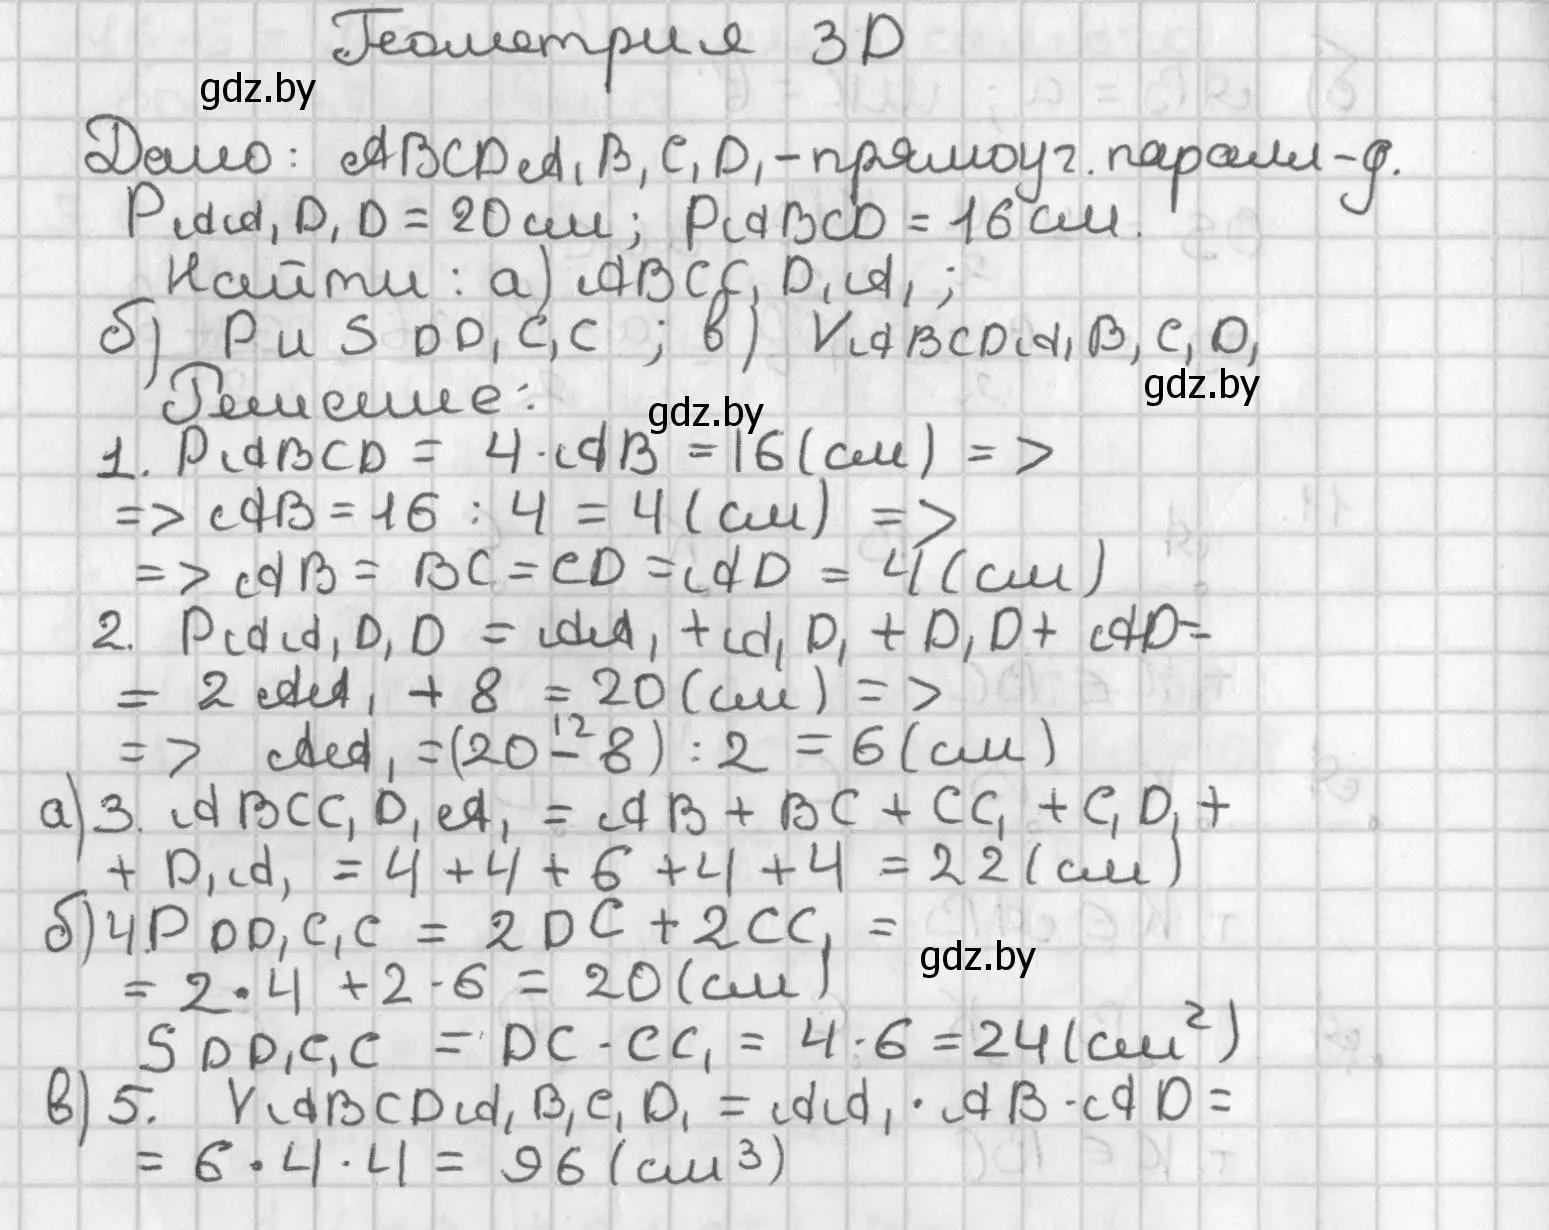 Геометрия 3D
gdz.by
Дано: ABCDA₁B₁C₁D₁ - прямоуг. паралл-д.
PAA₁D₁D = 20 см; PABCD = 16 см.
Найти: а) ABCC₁D₁A₁;
б) P и S DD₁C₁C; в) VABCDA₁B₁C₁D₁
gdz.by
Решение:
gdz.by
1. PABCD = 4·AB = 16 (см) =>
=> AB = 16 : 4 = 4 (см) =>
=> AB = BC = CD = AD = 4 (см)
2. PAA₁D₁D = AA₁ + A₁D₁ + D₁D + AD =
= 2AA₁ + 8 = 20 (см) =>
12
=> AA₁ = (20 - 8) : 2 = 6 (см)
а) 3. ABCC₁D₁A₁ = AB + BC + CC₁ + C₁D₁ +
+ D₁A₁ = 4 + 4 + 6 + 4 + 4 = 22 (см)
б) 4. P DD₁C₁C = 2DC + 2CC₁ =
gdz.by
= 2·4 + 2·6 = 20 (см)
S DD₁C₁C = DC·CC₁ = 4·6 = 24 (см²)
в) 5. VABCDA₁B₁C₁D₁ = AA₁·AB·AD =
= 6·4·4 = 96 (см³)